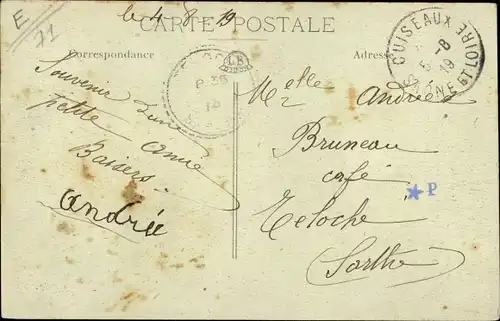 E
71
le 4 8 19
CARTE POSTALE
Correspondance
Adresse
LB
CUISEAUX
5-8
19
SAONE ET LOIRE
Souvenir d'une
petite amie
Baisers
Andrée
Melle Andrée
Bruneau
café
Teloché
Sarthe
P